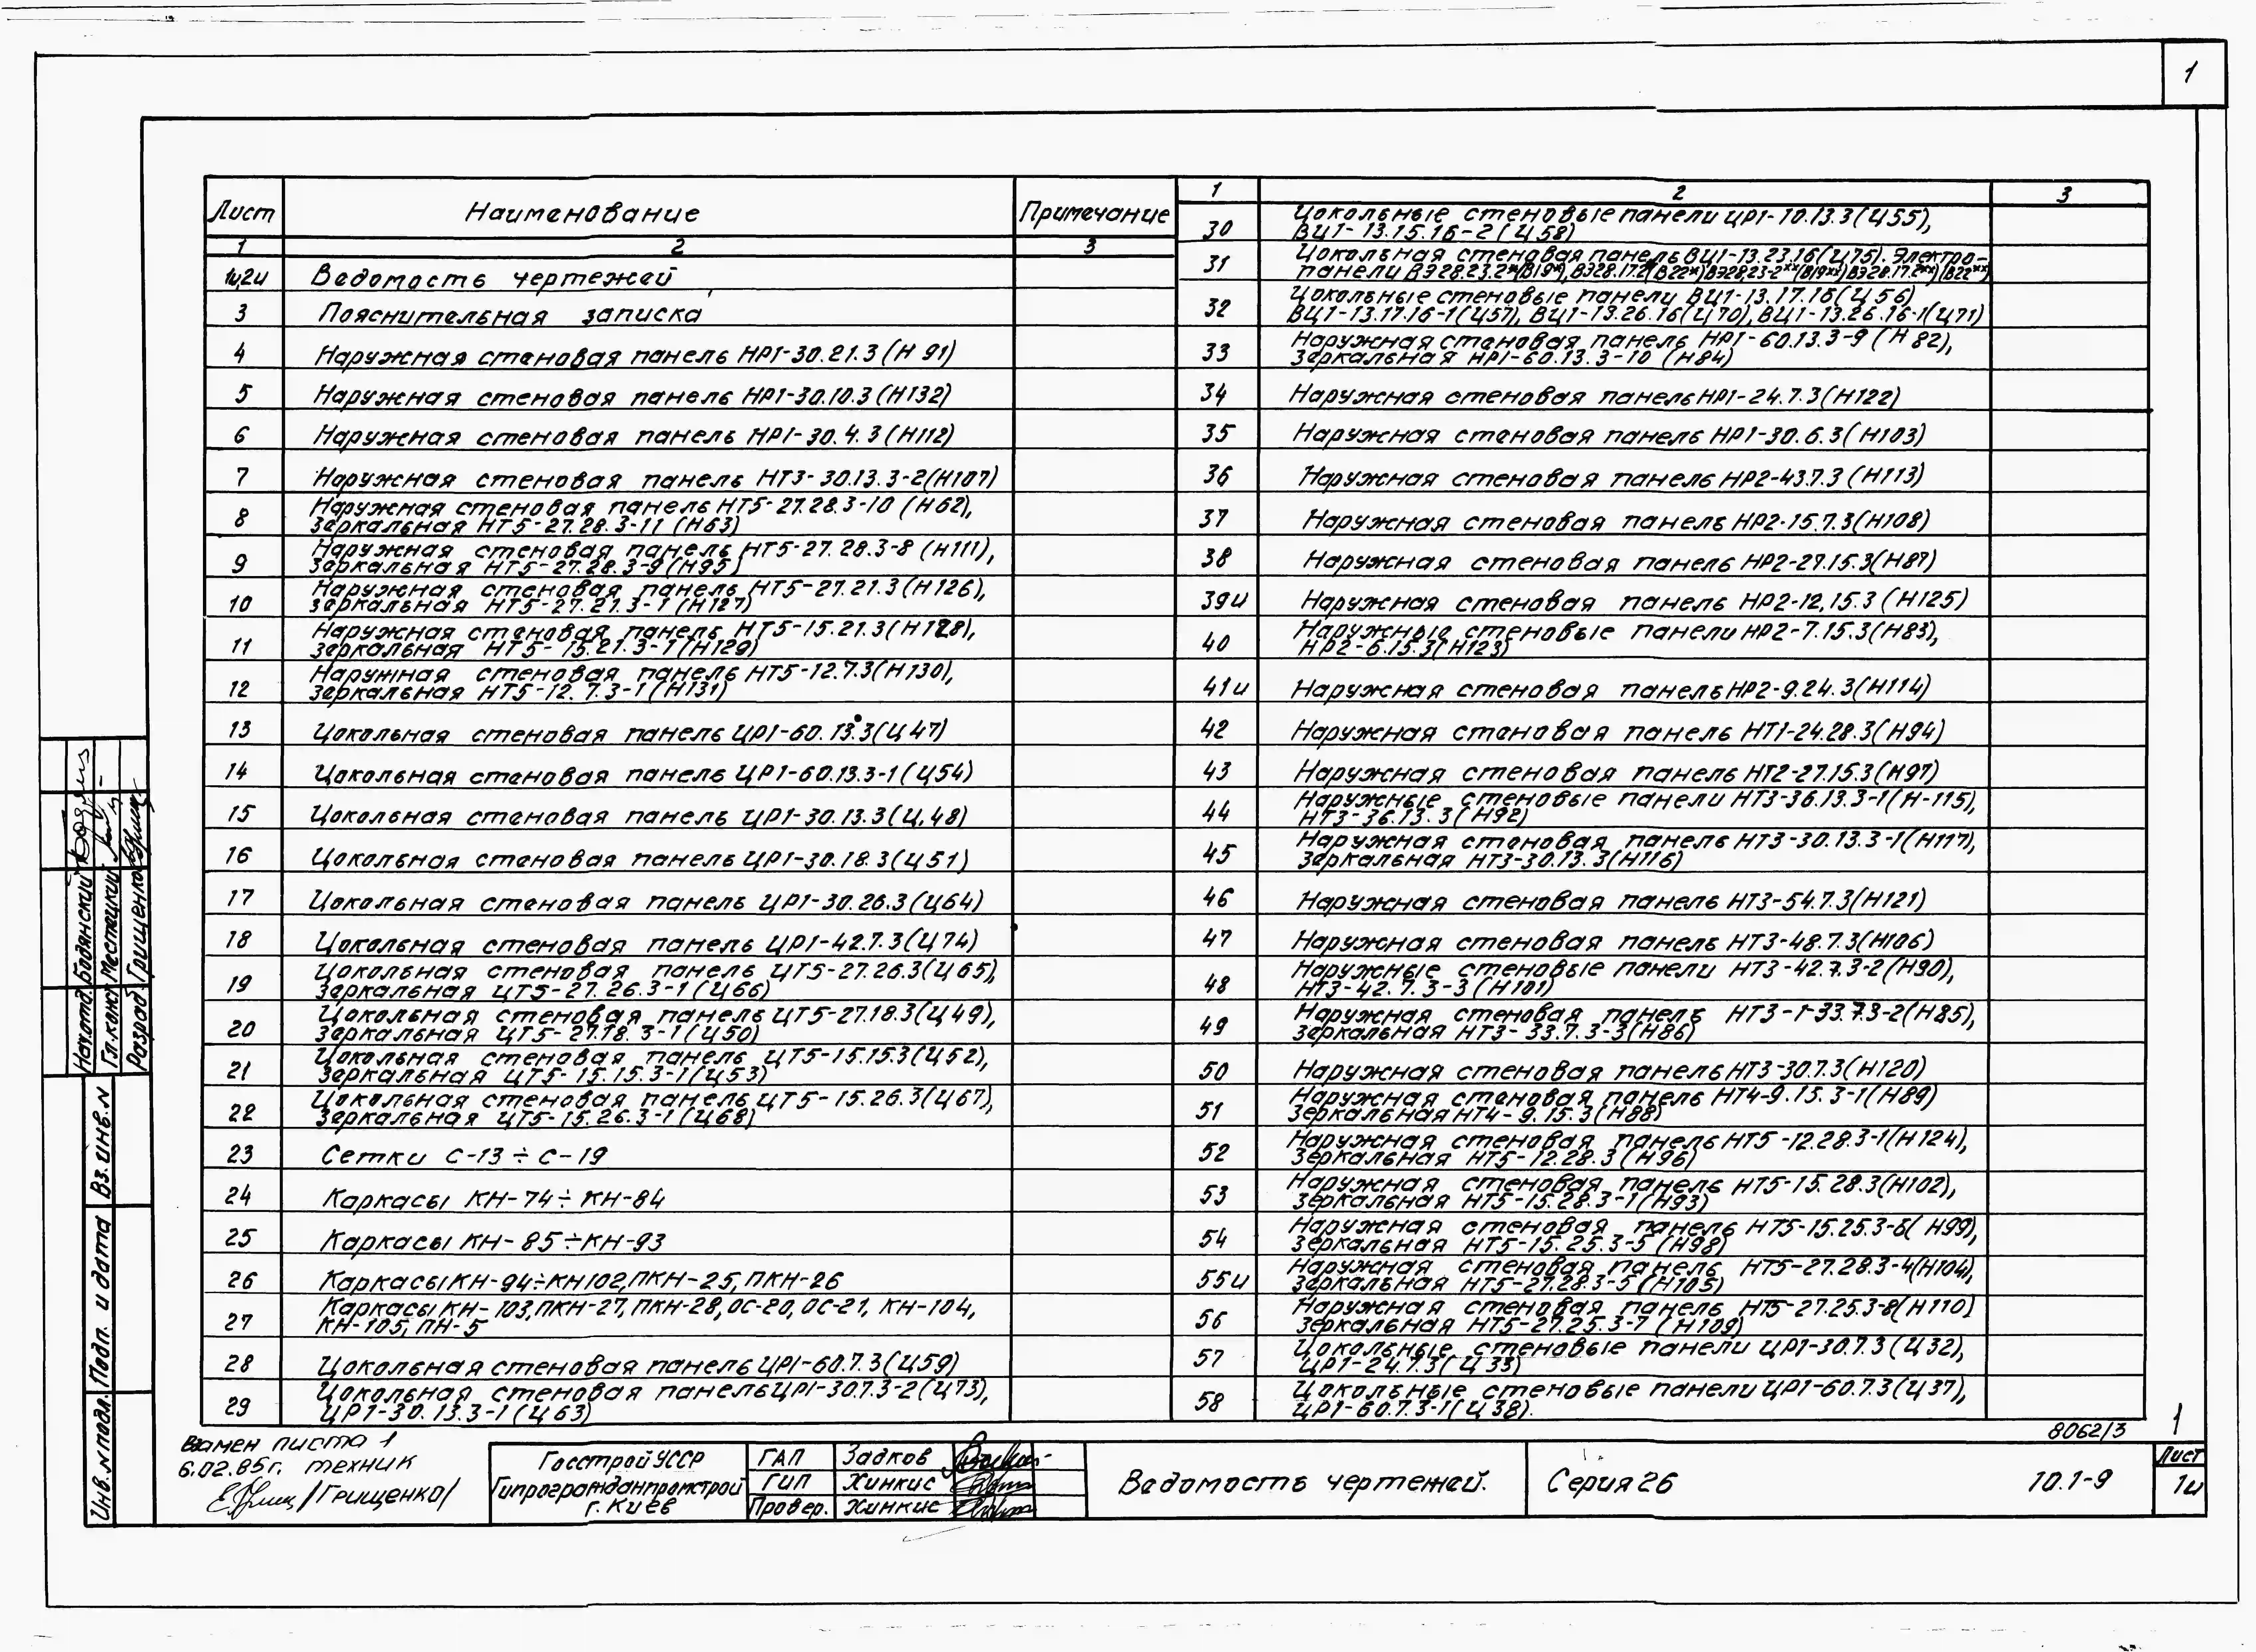 1
Лист Наименование Примечание
1 2 3
1и,2и Ведомость чертежей
3 Пояснительная записка
4 Наружная стеновая панель НР1-30.21.3 (Н 91)
5 Наружная стеновая панель НР1-30.10.3 (Н132)
6 Наружная стеновая панель НР1-30.4.3 (Н112)
7 Наружная стеновая панель НТ3-30.13.3-2(Н107)
8 Наружная стеновая панель НТ5-27.28.3-10 (Н62),
зеркальная НТ5-27.28.3-11 (Н63)
9 Наружная стеновая панель НТ5-27.28.3-8 (Н111),
зеркальная НТ5-27.28.3-9 (Н95)
10 Наружная стеновая панель НТ5-27.21.3 (Н126),
зеркальная НТ5-27.21.3-1 (Н127)
11 Наружная стеновая панель НТ5-15.21.3(Н128),
зеркальная НТ5-15.21.3-1(Н129)
12 Наружная стеновая панель НТ5-12.7.3(Н130),
зеркальная НТ5-12.7.3-1 (Н131)
13 Цокольная стеновая панель ЦР1-60.13.3(Ц47)
14 Цокольная стеновая панель ЦР1-60.13.3-1(Ц54)
15 Цокольная стеновая панель ЦР1-30.13.3(Ц.48)
16 Цокольная стеновая панель ЦР1-30.18.3(Ц51)
17 Цокольная стеновая панель ЦР1-30.26.3(Ц64)
18 Цокольная стеновая панель ЦР1-42.7.3(Ц74)
19 Цокольная стеновая панель ЦТ5-27.26.3(Ц65),
зеркальная ЦТ5-27.26.3-1 (Ц66)
20 Цокольная стеновая панель ЦТ5-27.18.3(Ц49),
зеркальная ЦТ5-27.18.3-1(Ц50)
21 Цокольная стеновая панель ЦТ5-15.15.3(Ц52),
зеркальная ЦТ5-15.15.3-1(Ц53)
22 Цокольная стеновая панель ЦТ5-15.26.3(Ц67),
зеркальная ЦТ5-15.26.3-1 (Ц68)
23 Сетки С-13÷С-19
24 Каркасы КН-74÷КН-84
25 Каркасы КН-85÷КН-93
26 Каркасы КН-94÷КН102,ПКН-25,ПКН-26
27 Каркасы КН-103,ПКН-27,ПКН-28,ОС-20,ОС-21, КН-104,
КН-105, ПН-5
28 Цокольная стеновая панель ЦР1-60.7.3(Ц59)
29 Цокольная стеновая панель ЦР1-30.7.3-2(Ц73),
ЦР1-30.13.3-1(Ц63)
1 2 3
30 Цокольные стеновые панели ЦР1-10.13.3(Ц55),
ВЦ1-13.15.16-2 (Ц58)
31 Цокольная стеновая панель ВЦ1-13.23.16(Ц75). Электро-
панели ВЭ28.23.2*(В19*),ВЭ28.17.2*(В22*)ВЭ28.23-2**(В19**)ВЭ28.17.2**)(В22**)
32 Цокольные стеновые панели ВЦ1-13.17.16(Ц56)
ВЦ1-13.17.16-1(Ц57), ВЦ1-13.26.16(Ц70), ВЦ1-13.26.16-1(Ц71)
33 Наружная стеновая панель НР1-60.13.3-9 (Н 82),
зеркальная НР1-60.13.3-10 (Н84)
34 Наружная стеновая панель НР1-24.7.3(Н122)
35 Наружная стеновая панель НР1-30.6.3(Н103)
36 Наружная стеновая панель НР2-43.7.3 (Н113)
37 Наружная стеновая панель НР2-15.7.3(Н108)
38 Наружная стеновая панель НР2-27.15.3(Н87)
39и Наружная стеновая панель НР2-12,15.3 (Н125)
40 Наружные стеновые панели НР2-7.15.3(Н83),
НР2-6.15.3(Н123)
41и Наружная стеновая панель НР2-9.24.3(Н114)
42 Наружная стеновая панель НТ1-24.28.3(Н94)
43 Наружная стеновая панель НТ2-27.15.3(Н97)
44 Наружные стеновые панели НТ3-36.13.3-1(Н-115),
НТ3-36.13.3(Н92)
45 Наружная стеновая панель НТ3-30.13.3-1(Н117),
зеркальная НТ3-30.13.3(Н116)
46 Наружная стеновая панель НТ3-54.7.3(Н121)
47 Наружная стеновая панель НТ3-48.7.3(Н106)
48 Наружные стеновые панели НТ3-42.7.3-2(Н90),
НТ3-42.7.3-3(Н101)
49 Наружная стеновая панель НТ3-1-33.7.3-2(Н85),
зеркальная НТ3-33.7.3-3(Н86)
50 Наружная стеновая панель НТ3-30.7.3(Н120)
51 Наружная стеновая панель НТ4-9.15.3-1(Н89)
зеркальная НТ4-9.15.3(Н88)
52 Наружная стеновая панель НТ5-12.28.3-1(Н124),
зеркальная НТ5-12.28.3 (Н96)
53 Наружная стеновая панель НТ5-15.28.3(Н102),
зеркальная НТ5-15.28.3-1(Н93)
54 Наружная стеновая панель НТ5-15.25.3-6(Н99),
зеркальная НТ5-15.25.3-5 (Н98)
55и Наружная стеновая панель НТ5-27.28.3-4(Н104),
зеркальная НТ5-27.28.3-5(Н105)
56 Наружная стеновая панель НТ5-27.25.3-8(Н110)
зеркальная НТ5-27.25.3-7 (Н109)
57 Цокольные стеновые панели ЦР1-30.7.3 (Ц32),
ЦР1-24.7.3(Ц33)
58 Цокольные стеновые панели ЦР1-60.7.3(Ц37),
ЦР1-60.7.3-1(Ц38).
8062/3 1
Взамен листа 1
6.02.85г. техник
/Грищенко/
Госстрой УССР
Гипрогражданпромстрой
г. Киев
ГАП Задков
ГИП Хинкис
Провер. Хинкис
Ведомость чертежей.
Серия 26
10.1-9
Лист
1и
Нач.отд. Бодянский
Гл.конст Местецкий
Разраб. Грищенко
Вз.инв.N
Подп. и дата
Инв.N подл.